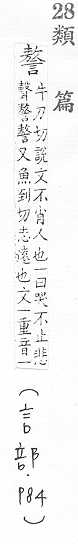 28
類篇
謷
牛刀切說文不肖人也一曰哭不止悲
聲謷謷又魚到切志遠也文一重音一
(言部·984)